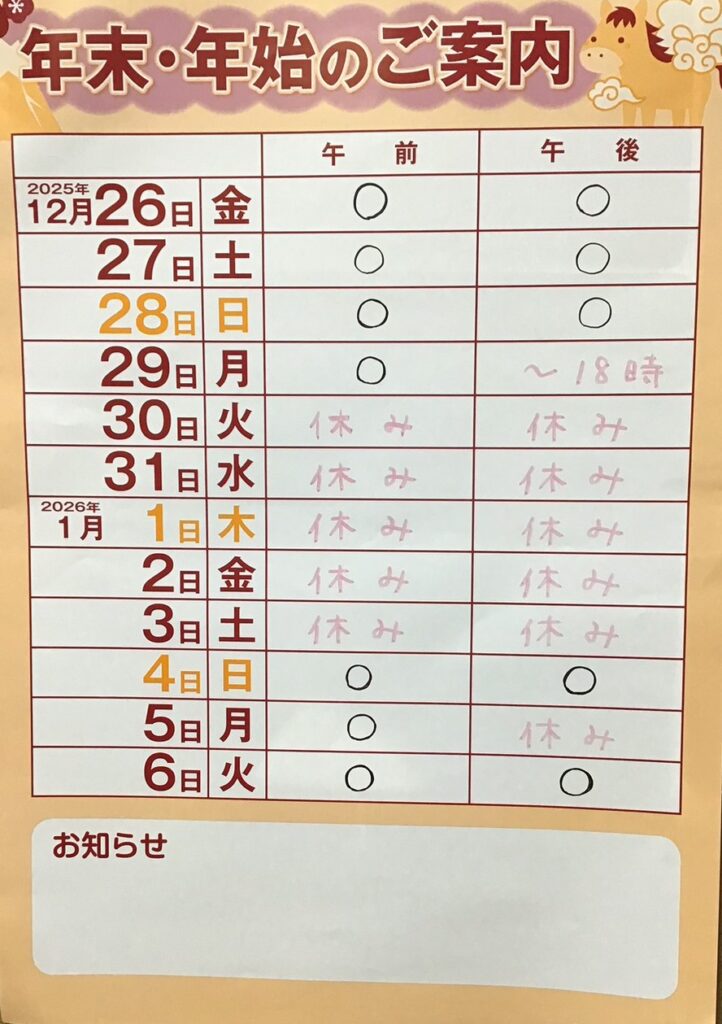 年末・年始のご案内
午前 午後
2025年 12月 26日 金 ○ ○
27日 土 ○ ○
28日 日 ○ ○
29日 月 ○ ～18時
30日 火 休み 休み
31日 水 休み 休み
2026年 1月 1日 木 休み 休み
2日 金 休み 休み
3日 土 休み 休み
4日 日 ○ ○
5日 月 ○ 休み
6日 火 ○ ○
お知らせ